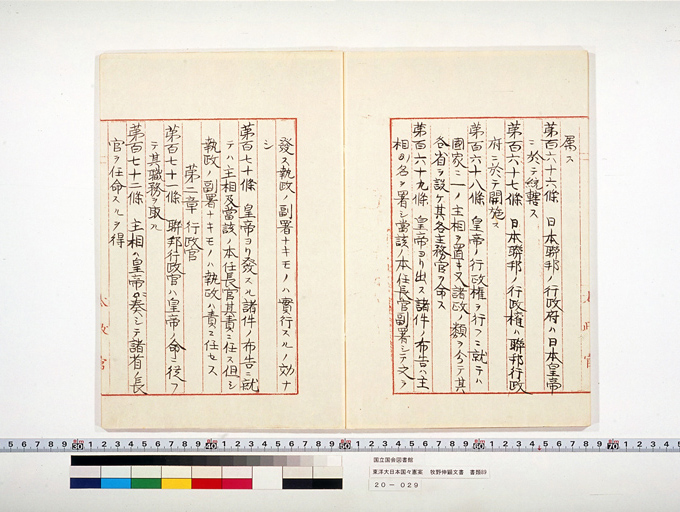 屬ス
第百六十六條 日本聯邦ノ行政府ハ日本皇帝
ニ於テ統轄ス
第百六十七條 日本聯邦ノ行政権ハ聯邦行政
府ニ於テ開施ス
第百六十八條 皇帝ノ行政権ヲ行フニ就テハ
國家ニ一ノ主相ヲ置キ又諸政ノ類ヲ分テ其
各省ヲ設ケ其各主務官ヲ命ス
第百六十九條 皇帝ヨリ出ス諸件ノ布告ハ主
相ノ名ヲ署シ當該ノ本任長官副署シテ之ヲ
發ス執政ノ副署ナキモノハ實行スルノ効ナ
シ
第百七十條 皇帝ヨリ發スル諸件ノ布告ニ就
テハ主相及當該ノ本任長官其責ニ任ス但シ
執政ノ副署ナキモノハ執政ハ責ニ任セス
第二章 行政官
第百七十一條 聯邦行政官ハ皇帝ノ命ニ従フ
テ其職務ヲ取ル
第百七十二條 主相ハ皇帝ニ奏シテ諸省ノ長
官ヲ任命スルヲ得
政官
政官
30 40 50 60 70
国立国会図書館
東洋大日本国々憲案 牧野伸顕文書 書類89
20－029